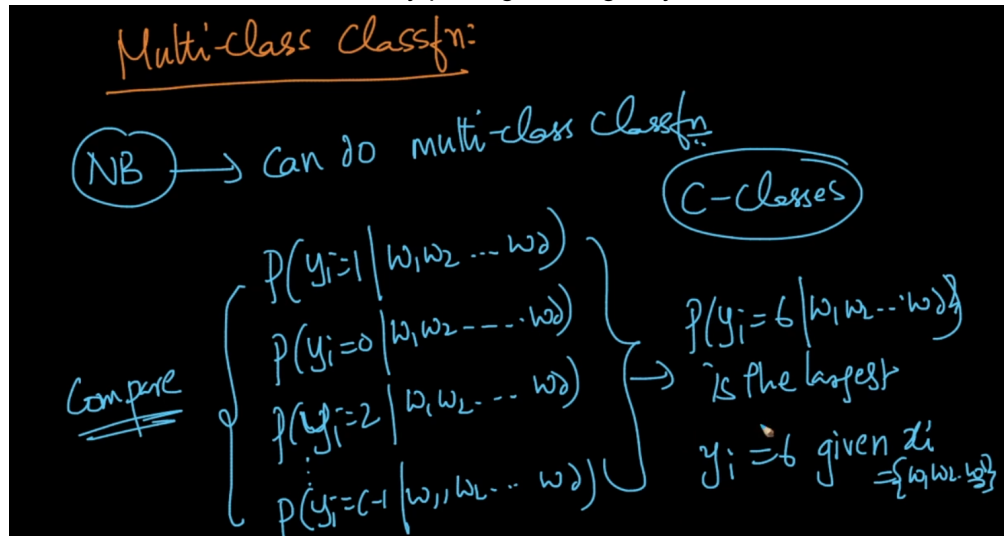 Multi-class Classfn:
NB → Can do multi-class classfn
C-classes
Compare
P(yi=1 | w1, w2 ... wd)
P(yi=0 | w1, w2 ----. wd)
P(yi=2 | w1, w2 ... wd)
⋮
P(yi=c-1 | w1, w2 ... wd)
→ P(yi=6 | w1, w2 ... wd)
is the largest
yi=6 given xi
={w1, w2.. wd}